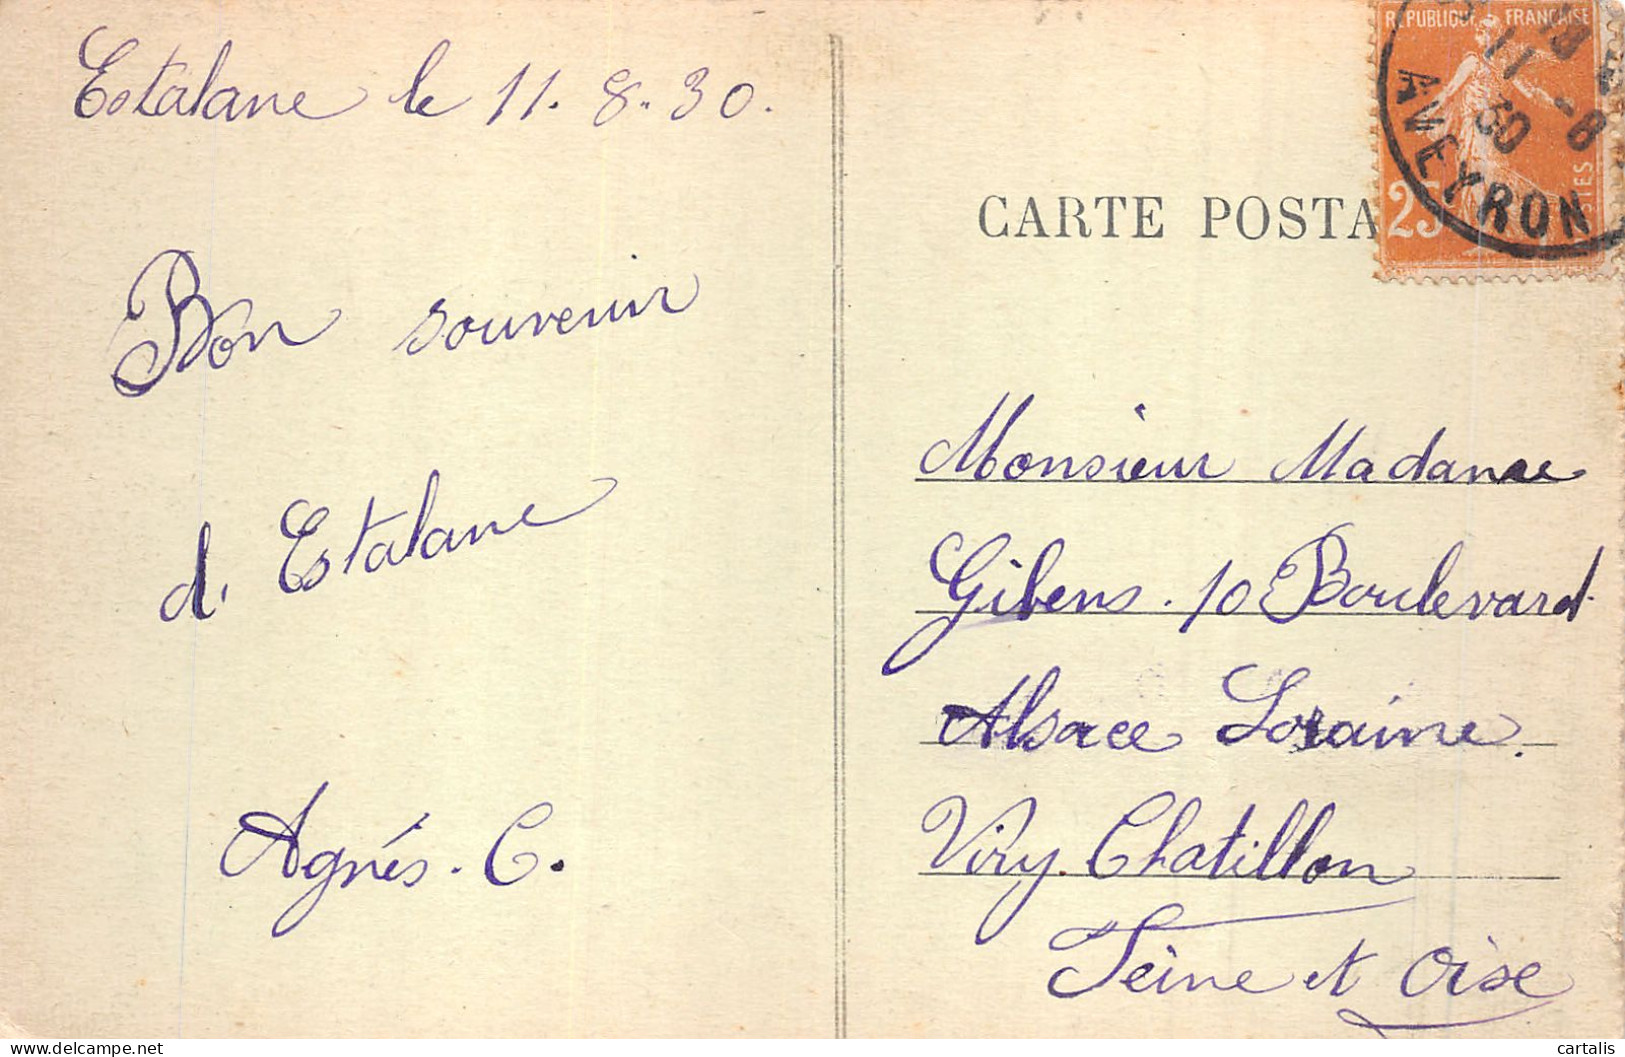 Estalane le 11. 8. 30.
Bon souvenir
d. Estalane
Agnés. C.
RÉPUBLIQUE FRANÇAISE
25
POSTES
18
11 -8
30
AVEYRON
CARTE POSTA
Monsieur Madame
Gibens. 10 Boulevard
Alsace Loraine.
Viry. Chatillon
Seine et Oise
cartalis